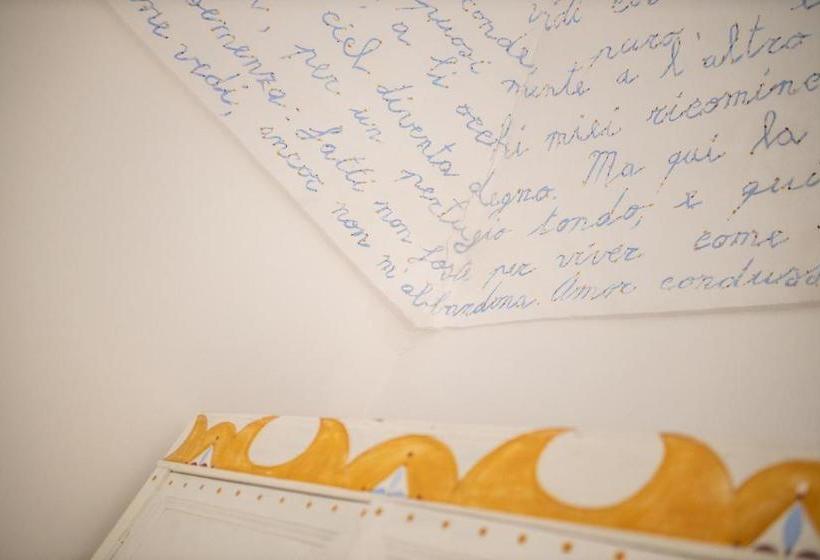 vidi
conde puro,
puosi mente a l'altro
a li occhi miei ricominc
ciel diventa degno. Ma qui la
, per un pertugio tondo; e qui
semenza: fatti non foste per viver come
me vedi, ancor non m'abbandona. Amor condusse